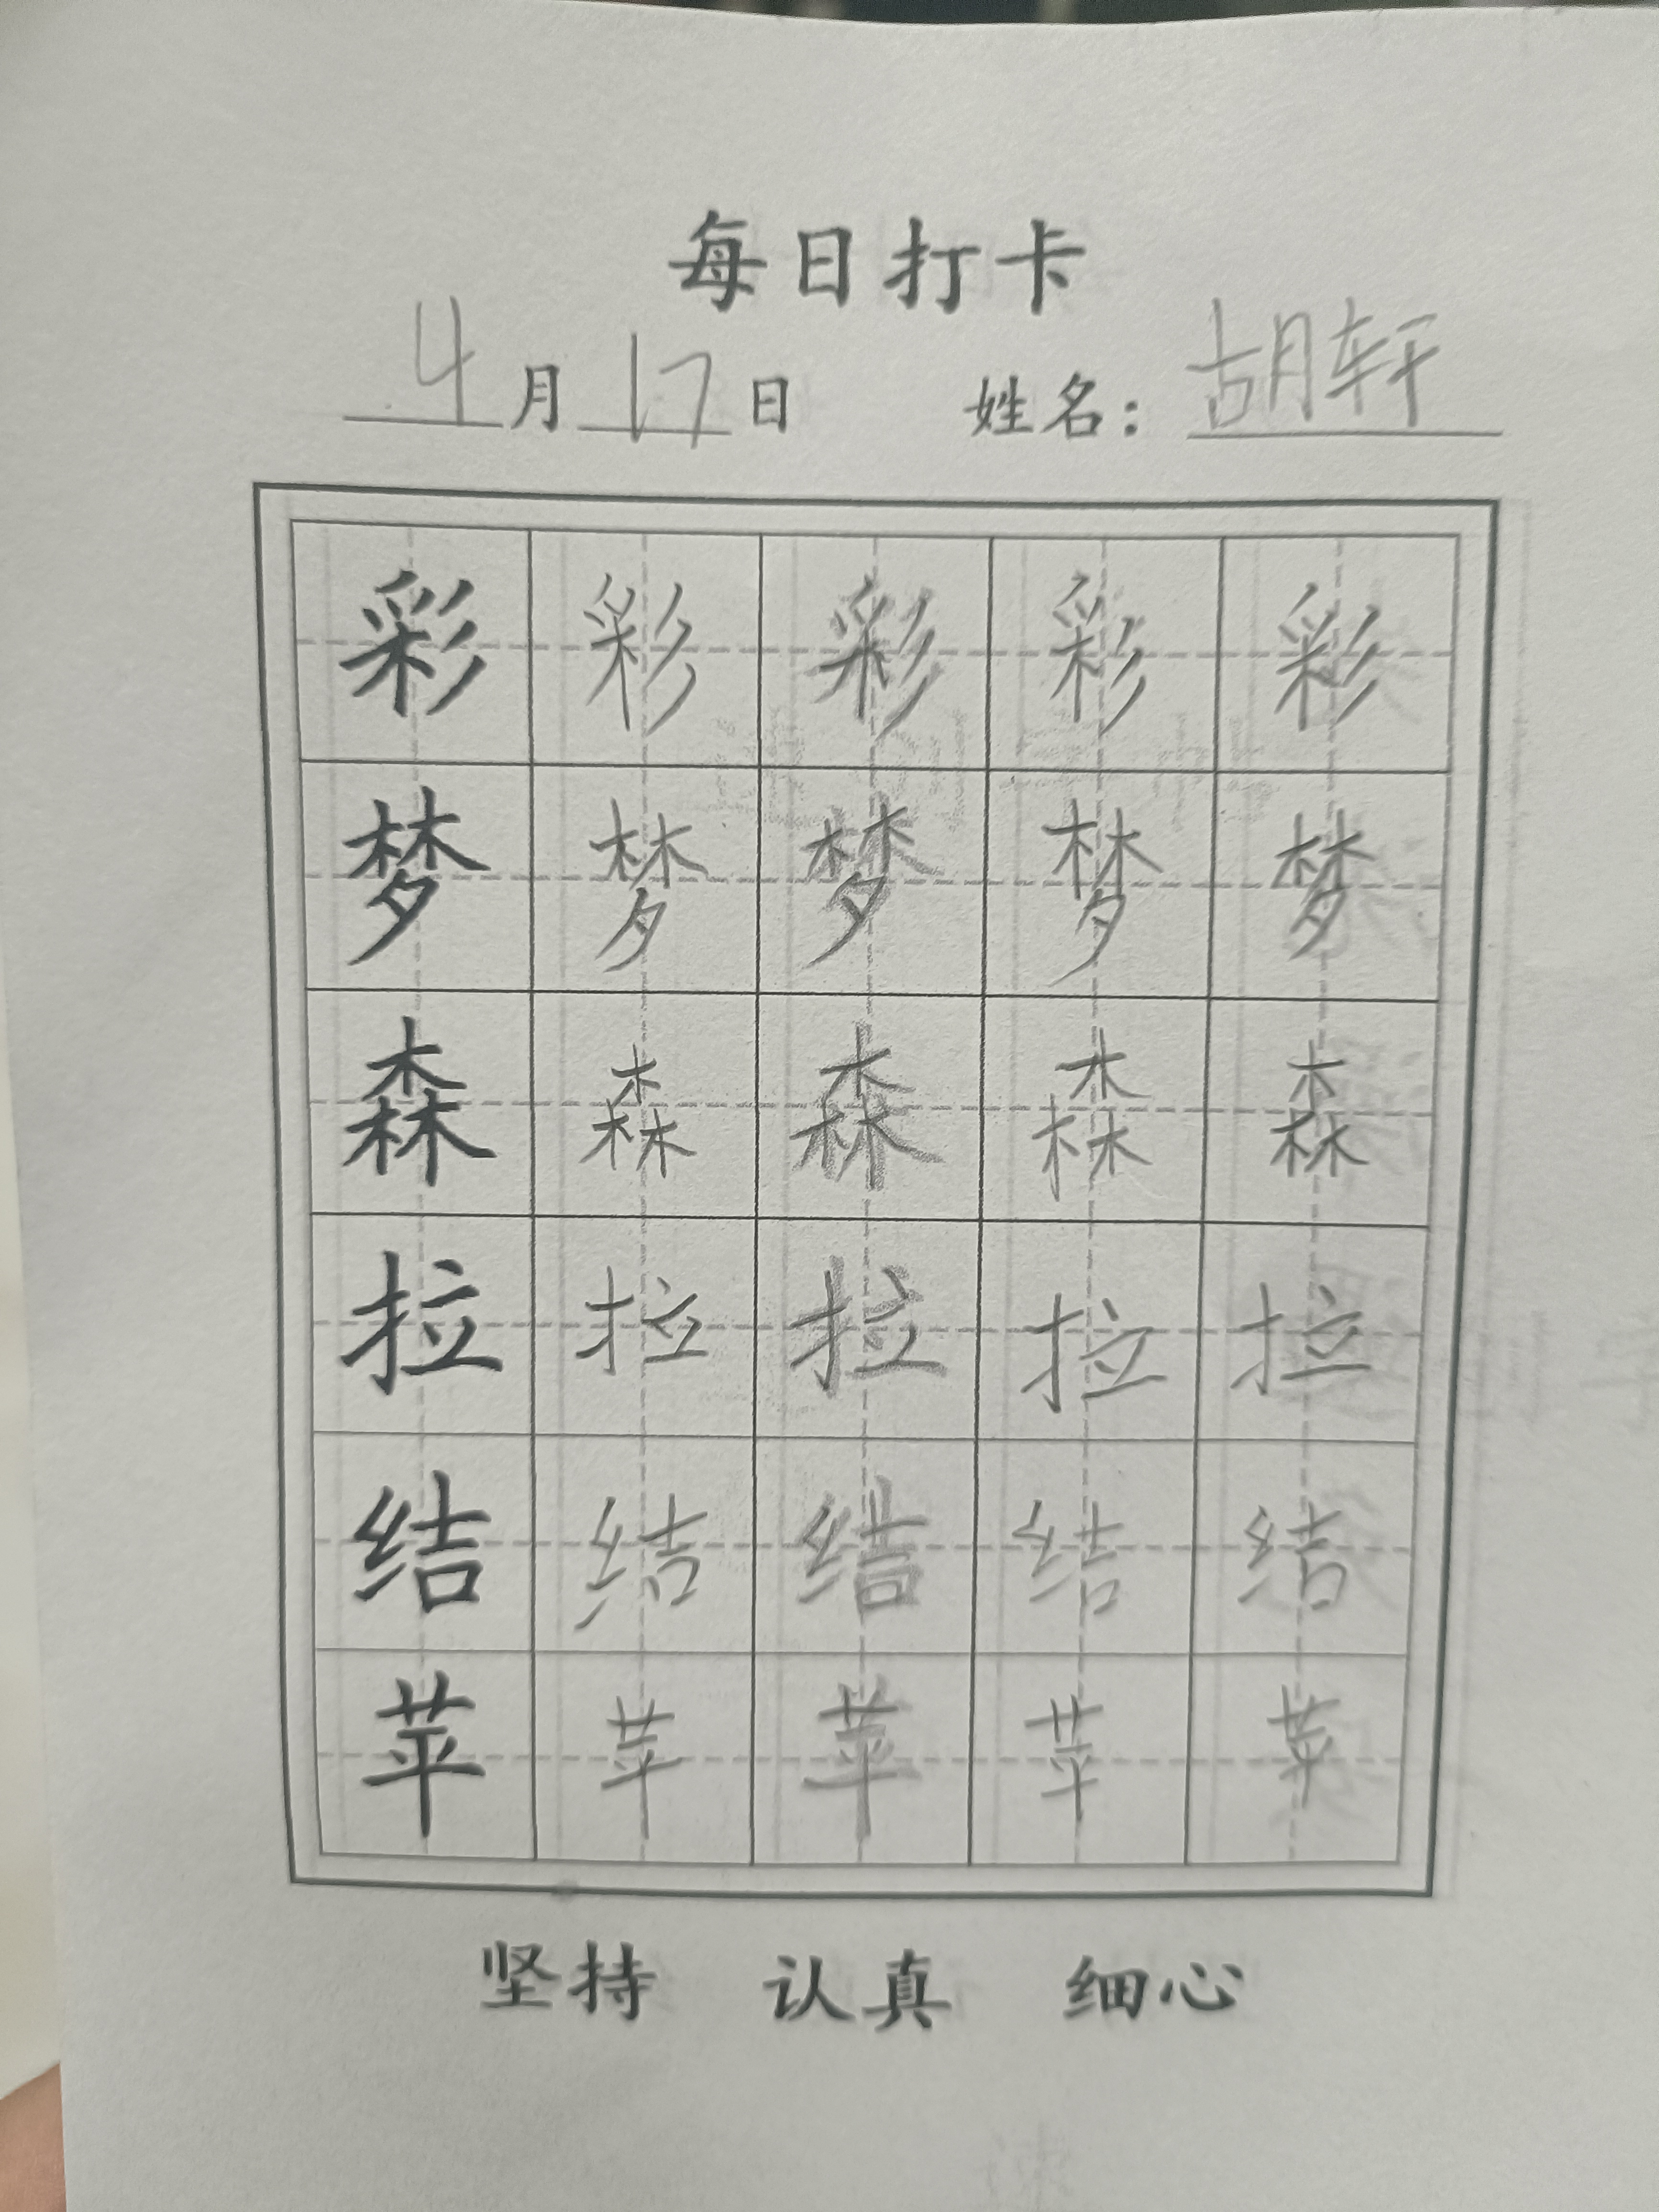 每日打卡
4月17日 姓名：胡轩
彩 彩 彩 彩 彩
梦 梦 梦 梦 梦
森 森 森 森 森
拉 拉 拉 拉 拉
结 结 结 结 结
苹 苹 苹 苹 苹
坚持 认真 细心